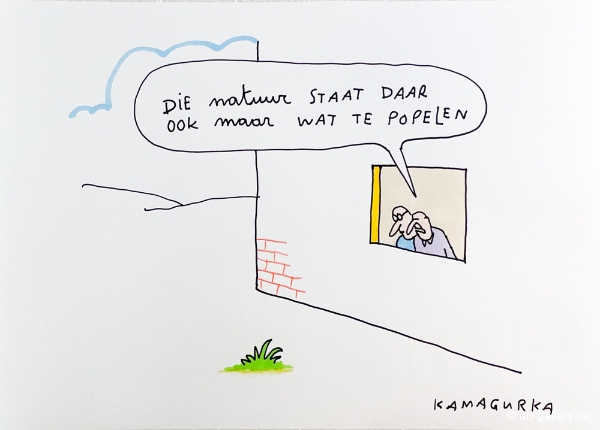 DIE natuur STAAT DAAR
OOK maar WAT TE POPELEN
KAMAGURKA